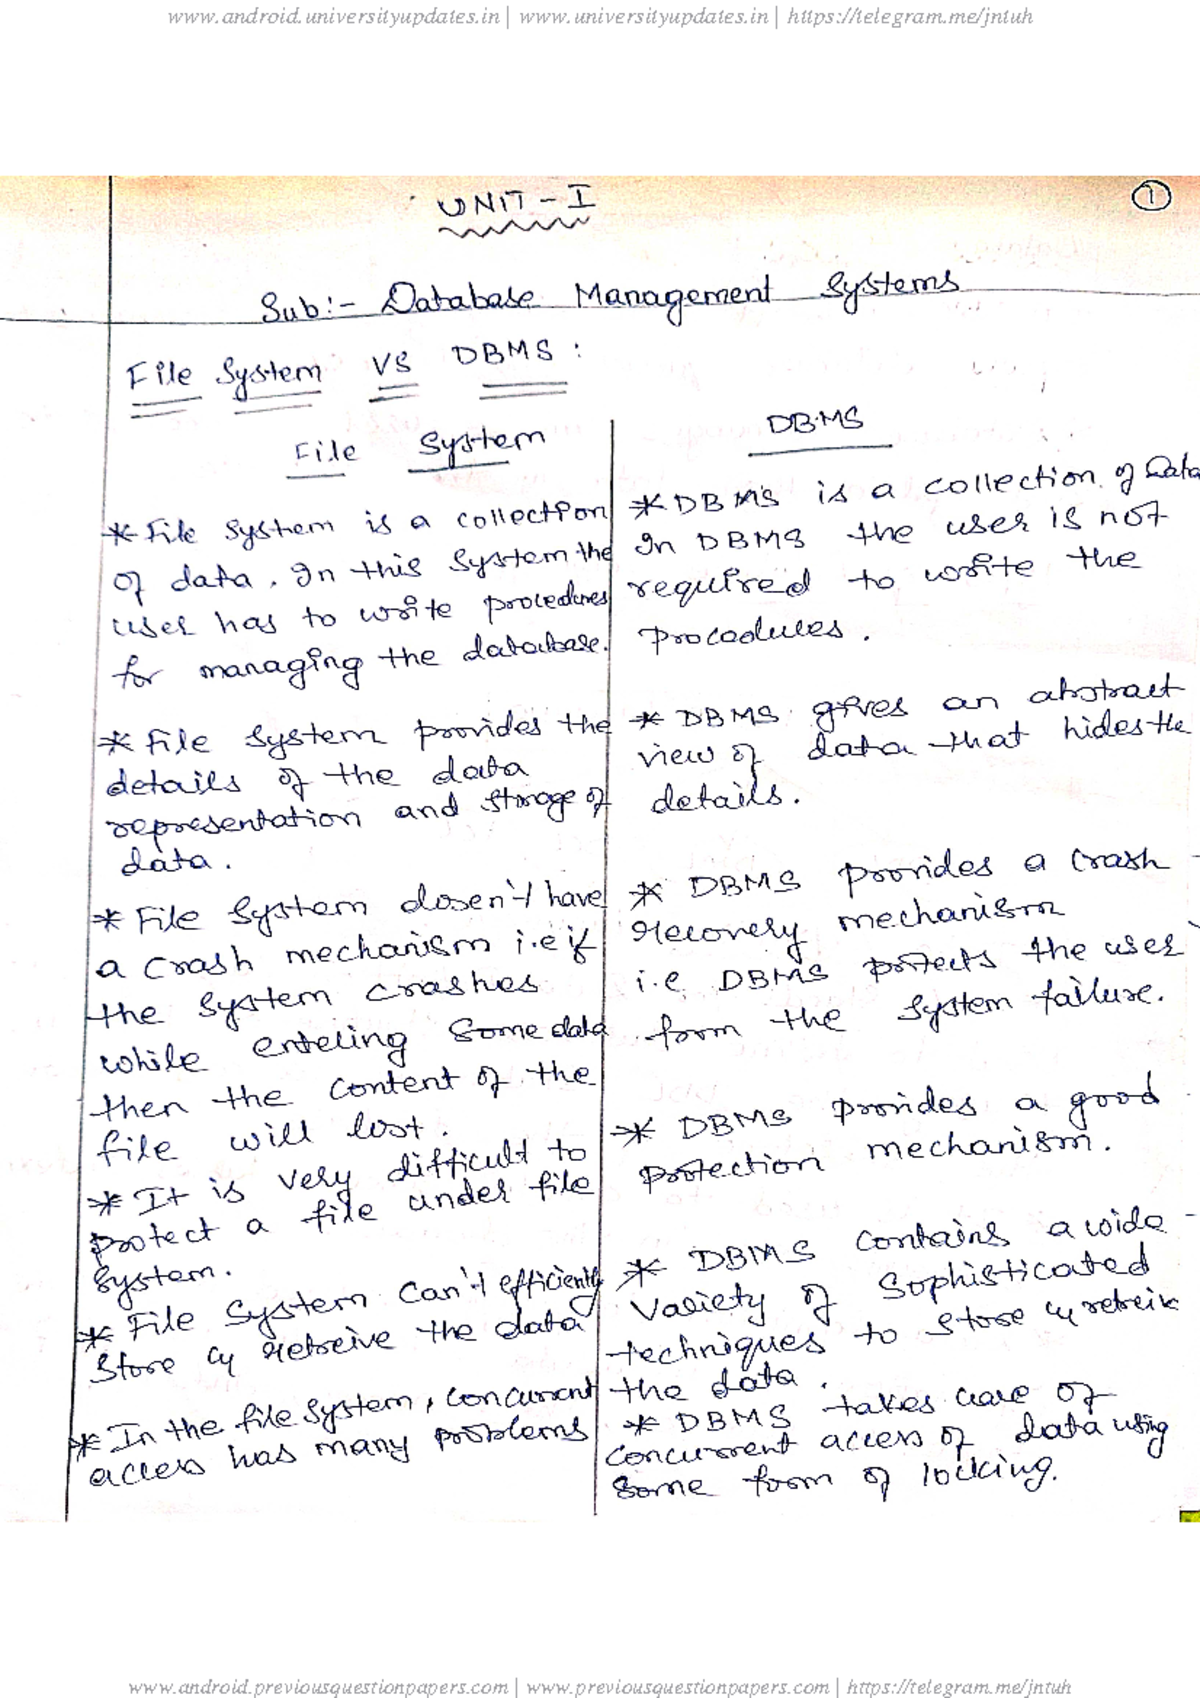 www.android.universityupdates.in | www.universityupdates.in | https://telegram.me/jntuh
UNIT - I
1
Sub:- Database Management Systems
File System VS DBMS :
File System
* File system is a collection
of data. In this system the
user has to write procedures
for managing the database.
* File system provides the
details of the data
representation and storage of
data.
* File system dosen't have
a crash mechanism i.e if
the system crashes
while entering some data
then the content of the
file will lost.
* It is very difficult to
protect a file under file
system.
* File system can't efficiently
store & retreive the data
* In the file system, concurrent
access has many problems
DBMS
* DBMS is a collection of Data
In DBMS the user is not
required to write the
procedures.
* DBMS gives an abstract
view of data that hides the
details.
* DBMS provides a crash
recovery mechanism
i.e DBMS protects the user
form the system failure.
* DBMS provides a good
protection mechanism.
* DBMS contains a wide
variety of sophisticated
techniques to store & retreiv
the data.
* DBMS takes care of
concurrent access of data using
some form of locking.
www.android.previousquestionpapers.com | www.previousquestionpapers.com | https://telegram.me/jntuh